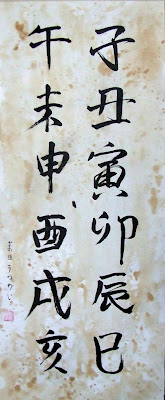 子丑寅卯辰巳
午未申酉戌亥